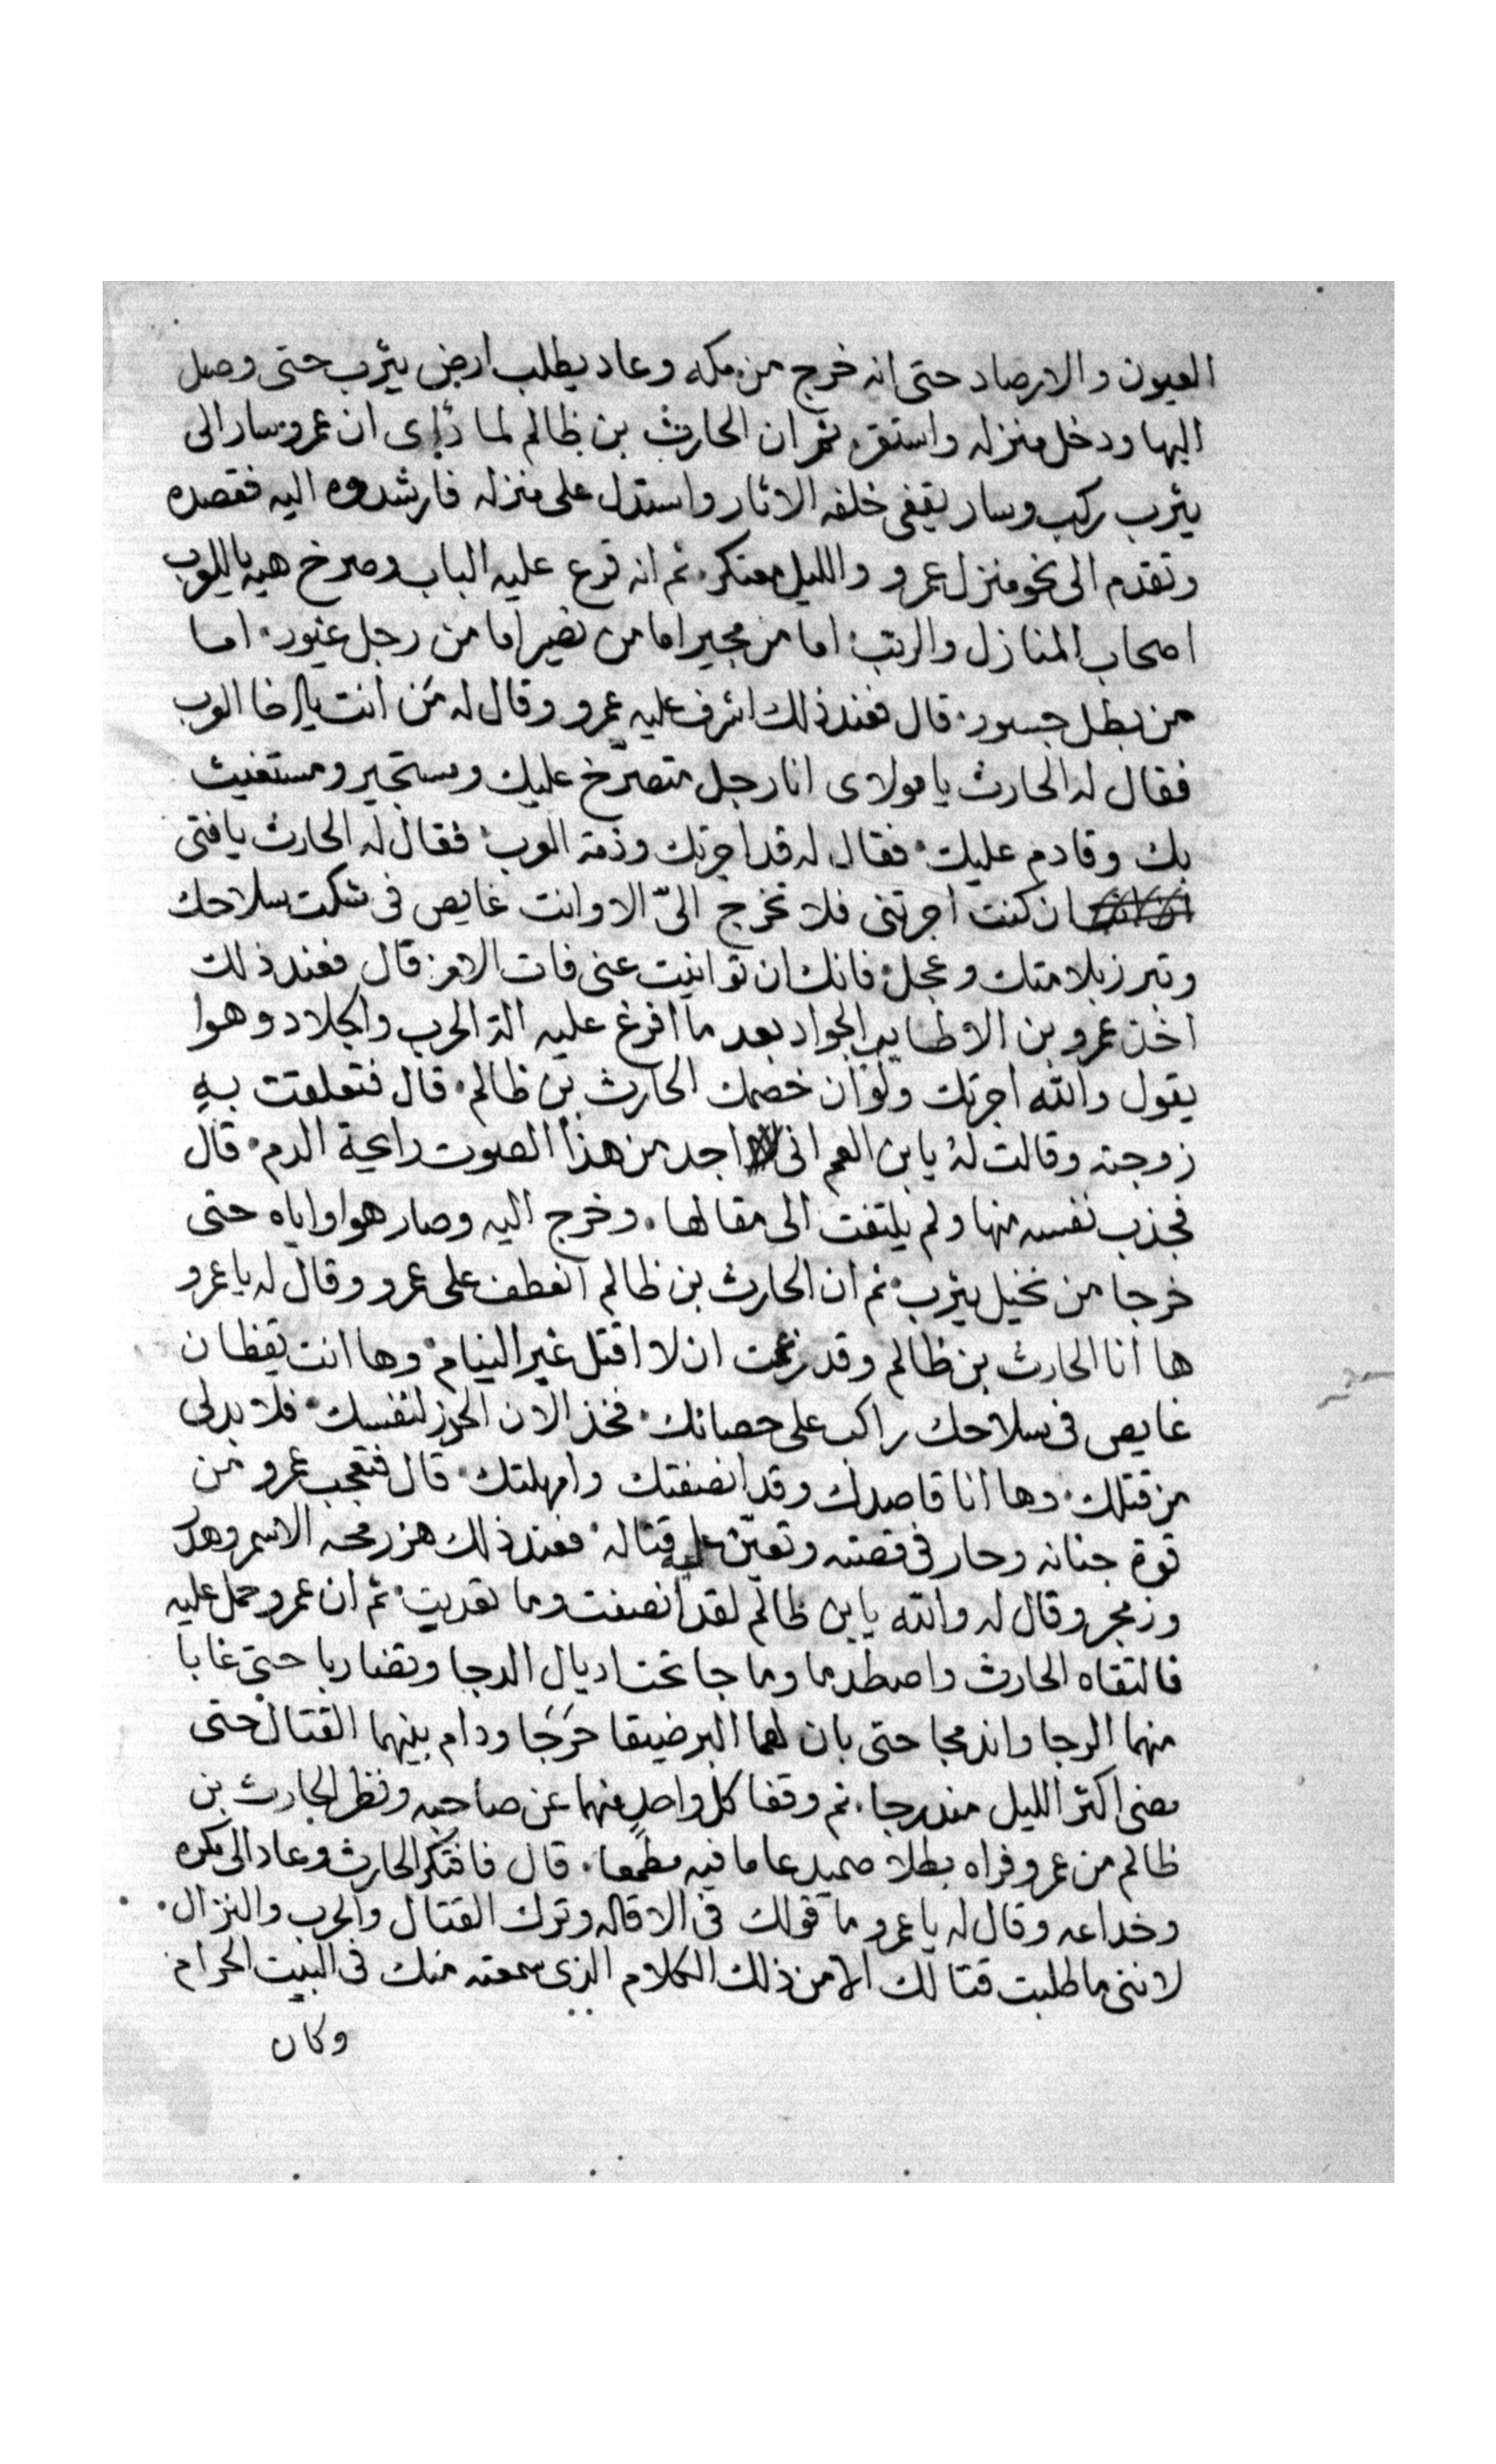 العيون والارصاد حتى انه خرج من مكه وعاد يطلب ارض يثرب حتى وصل
اليها ودخل منزله واستقر. ثم ان الحارث بن ظالم لما رأى ان عمرو سار الى
يثرب ركب وسار يقفى خلفه الاثار واستدل على منزله فارشدوه اليه فقصده
وتقدم الى نحو منزل عمرو والليل معتكر. ثم انه قرع عليه الباب وصرخ هيه ياللعرب
اصحاب المنازل والرتب اما من مجير اما من نصير اما من رجل غيور. اما
من بطل جسور. قال فعند ذلك اشرف عليه عمرو وقال له من انت يااخا العرب
فقال له الحارث يا مولاى انا رجل متصرّخ عليك ومستجير ومستغيث
بك وقادم عليك. فقال له قد اجرتك وذمة العرب. فقال له الحارث يا فتى
ان كنت اجرتنى فلا تخرج الىّ الا وانت غايص فى شكت سلاحك
وتبرز بلامتك وعجل. فانك ان توانيت عنى فات الامر. قال فعند ذلك
اخذ عمرو بن الاطايب الجواد بعد ما افرغ عليه الة الحرب والجلاد وهوا
يقول والله اجرتك ولو ان خصمك الحارث بن ظالم. قال فتعلقت به
زوجته وقالت له يا بن العم انى اجد من هذا الصوت رايحة الدم. قال
فجذب نفسه منها ولم يلتفت الى مقالها. وخرج اليه وصار هوا واياه حتى
خرجا من نخيل يثرب. ثم ان الحارث بن ظالم انعطف على عمرو وقال له يا عمرو
ها انا الحارث بن ظالم وقد زعمت ان لا اقتل غير النيام. وها انت يقظان
غايص فى سلاحك راكب على حصانك. فخذ الان الحرز لنفسك. فلا بد لى
من قتلك. وها انا قاصدك وقد انصفتك وامهلتك. قال فتعجب عمرو من
قوة جنانه وحار فى قصته وتعيّن عليه قتاله. فعند ذلك هز رمحه الاسمر وهدر
وزمجر وقال له والله يا بن ظالم لقد انصفت وما تعديت. ثم ان عمرو حمل عليه
فالتقاه الحارث واصطدما وما جا تحت اديال الدجا وتضاربا حتى غابا
منهما الرجا واندمجا حتى بان لهما البر ضيقا حَرَجَا ودام بينهما القتال حتى
مضى اكثر الليل مندرجا. ثم وقفا كل واحدٍ منهما عن صاحبه ونظر الحارث بن
ظالم من عمرو فراه بطلا صميدعا ما فيه مطمعا. قال فافتكر الحارث وعاد الى مكره
وخداعه وقال له يا عمرو ما قولك فى الاقاله وترك القتال والحرب والنزال.
لاننى ما طلبت قتالك الا من ذلك الكلام الذى سمعته منك فى البيت الحرام
وكان